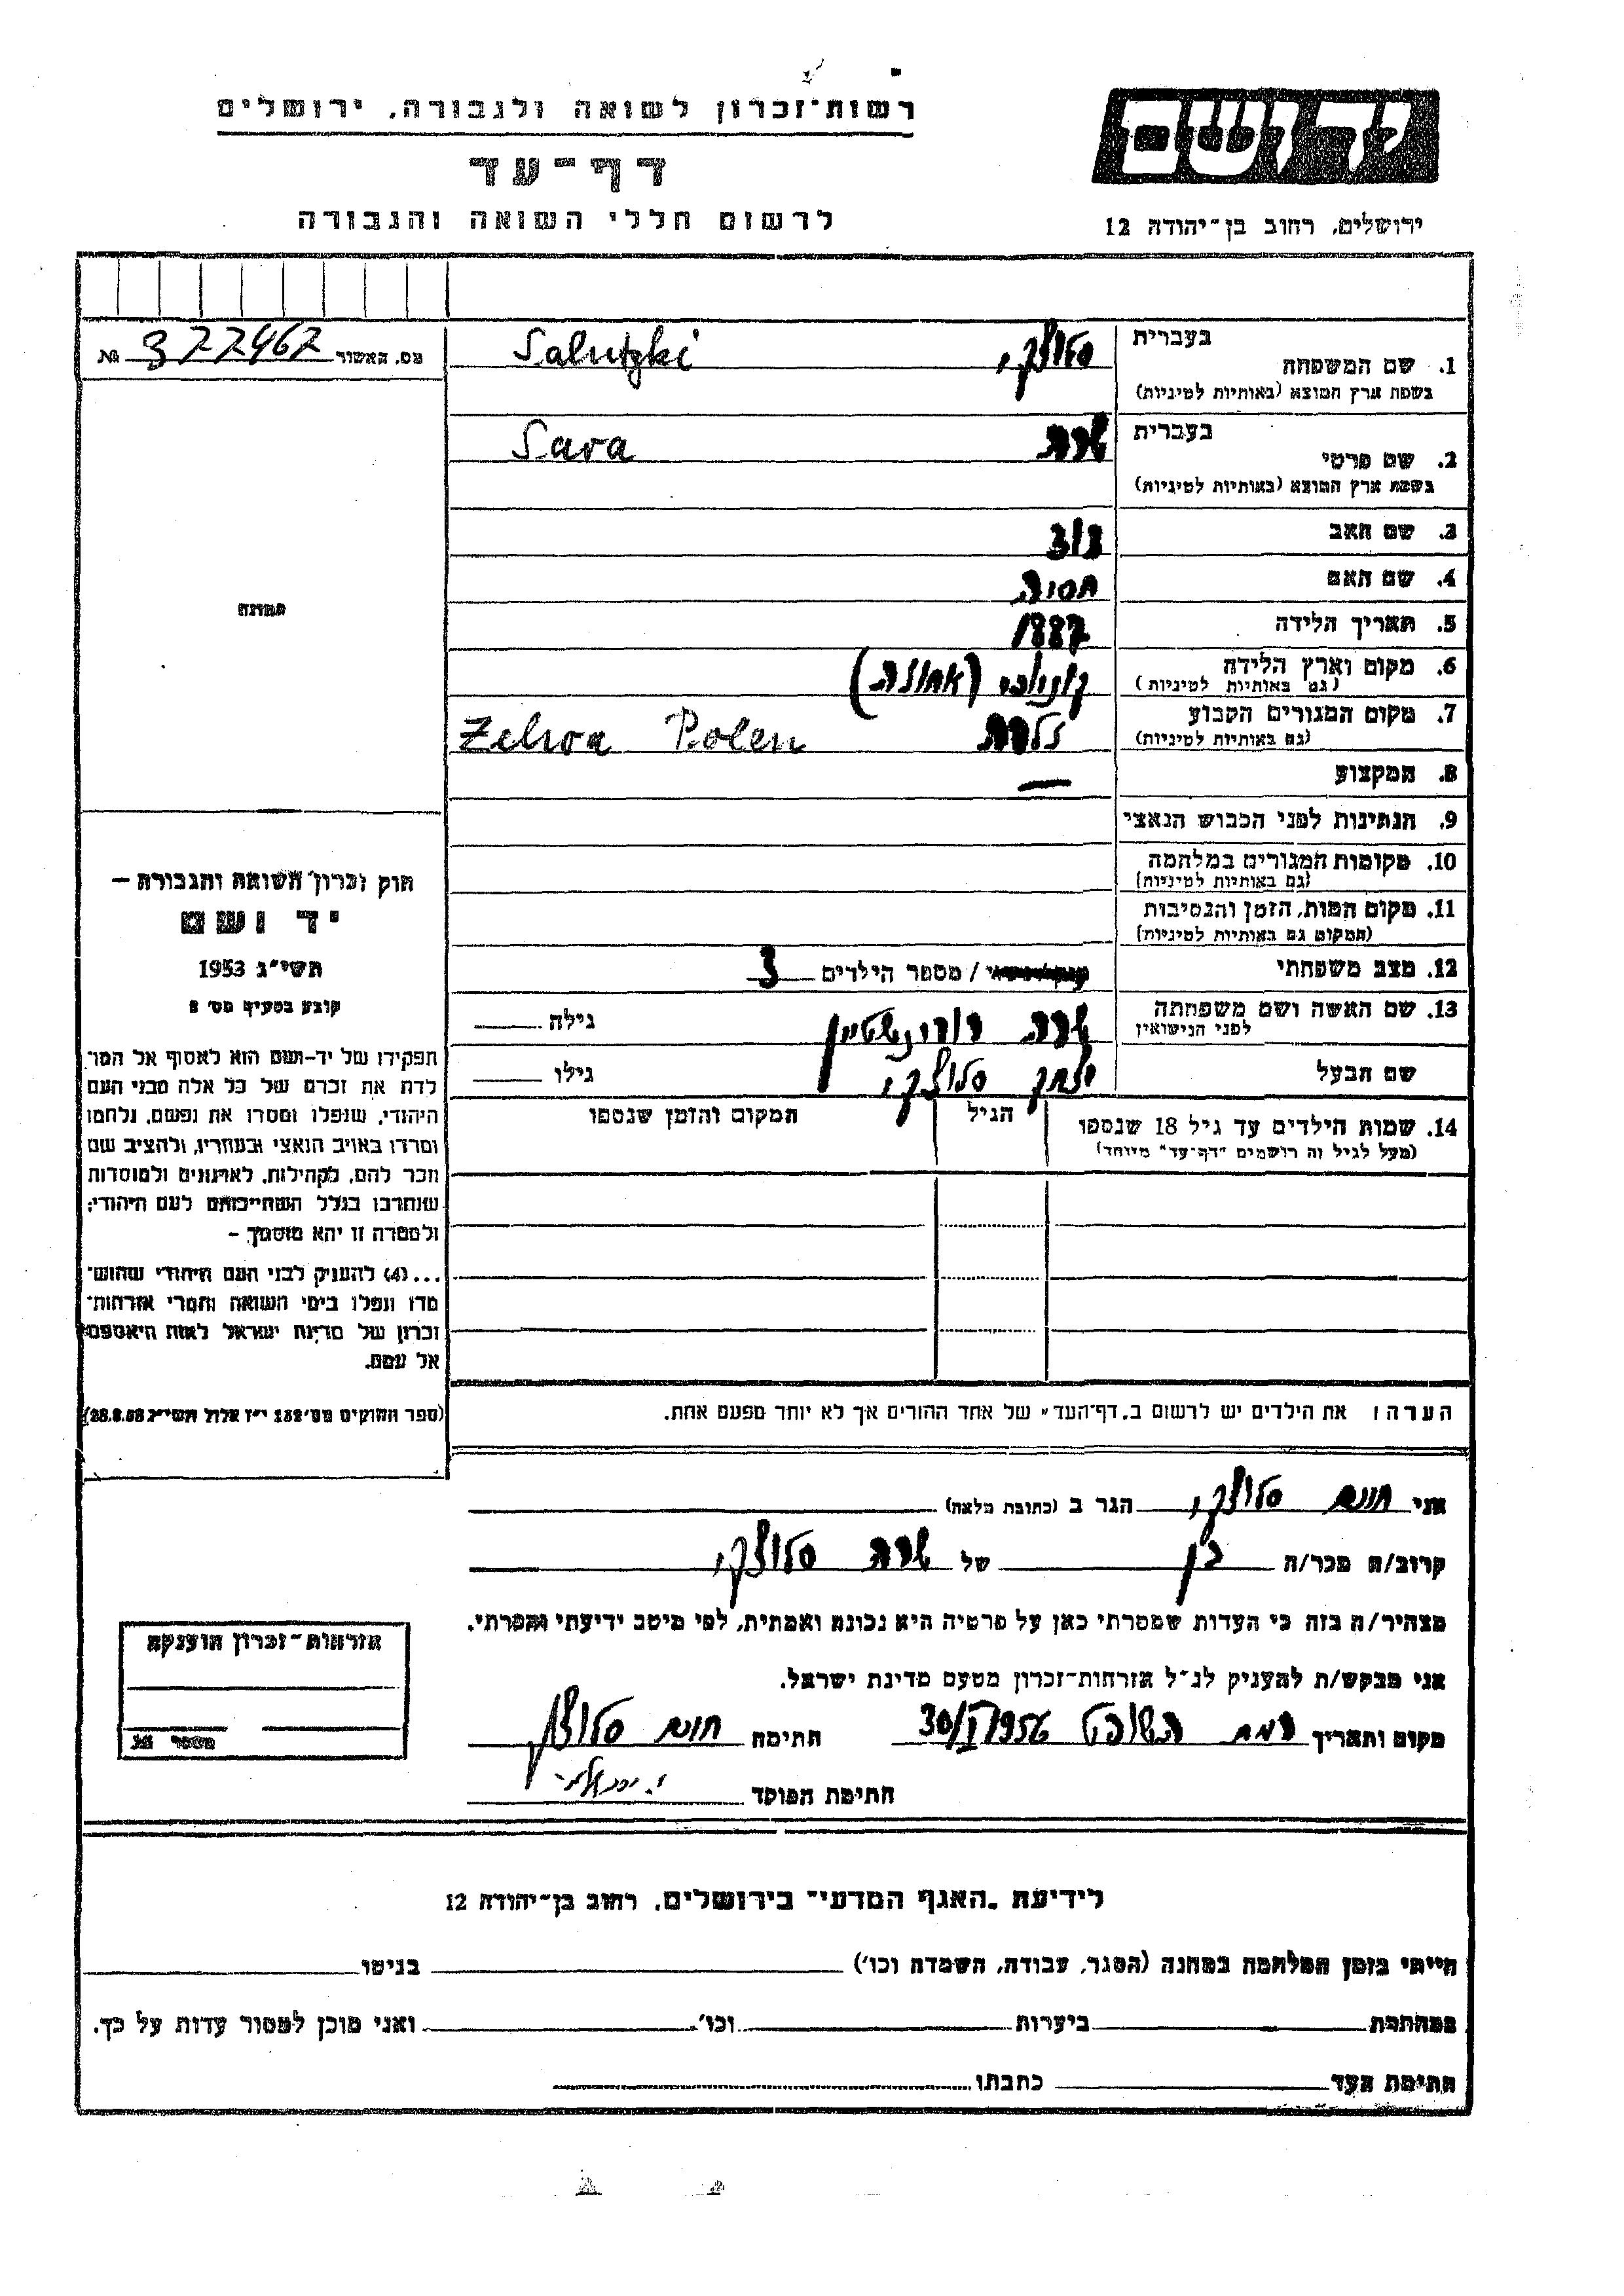 רשות־זכרון לשואה ולגבורה, ירושלים
ידושם
דף־עד
לרשום חללי השואה והגבורה
ירושלים, רחוב בן־יהודה 12
מס. האשור 322462 №
1. שם המשפחה
בעברית סלוצקי, Salutzki
בשפת ארץ המוצא (באותיות לטיניות)
2. שם פרטי
בעברית שרה Sara
בשפת ארץ המוצא (באותיות לטיניות)
3. שם האב
4. שם האם
5. תאריך הלידה 1887
תמונה
6. מקום וארץ הלידה
(גם באותיות לטיניות)
7. מקום המגורים הקבוע Zelwa Polen
(גם באותיות לטיניות)
8. המקצוע —
9. הנתינות לפני הכבוש הנאצי
10. מקומות המגורים במלחמה
(גם באותיות לטיניות)
11. מקום המות, הזמן והנסיבות
(המקום גם באותיות לטיניות)
12. מצב משפחתי / מספר הילדים 3
13. שם האשה ושם משפחתה
לפני הנישואין שרה גילה
שם הבעל יצחק סלוצקי, גילו
14. שמות הילדים עד גיל 18 שנספו הגיל המקום והזמן שנספו
(מעל לגיל זה רושמים "דף־עד" מיוחד)
חוק זכרון השואה והגבורה –
יד ושם
תשי"ג 1953
קובע בסעיף מס' 2
תפקידו של יד-ושם הוא לאסוף אל המו־
לדת את זכרם של כל אלה מבני העם
היהודי, שנפלו ומסרו את נפשם, נלחמו
ומרדו באויב הנאצי ובעוזריו, ולהציב שם
וזכר להם, לקהילות, לארגונים ולמוסדות
שנחרבו בגלל השתייכותם לעם היהודי;
ולמטרה זו יהא מוסמך –
...(4) להעניק לבני העם היהודי שהוש־
מדו ונפלו בימי השואה והמרי אזרחות־
זכרון של מדינת ישראל לאות היאספם
אל עמם.
(ספר החוקים מס' 132 י"ז אלול תשי"ג 28.8.53)
הערה: את הילדים יש לרשום ב,,דף־העד" של אחד ההורים אך לא יותר מפעם אחת.
אני חיים סלוצקי, הגר ב (כתובת מלאה)
קרוב/ה מכר/ה בן של שרה סלוצקי,
מצהיר/ה בזה כי העדות שמסרתי כאן על פרטיה היא נכונה ואמתית, לפי מיטב ידיעתי והכרתי.
אני מבקש/ת להעניק לנ"ל אזרחות־זכרון מטעם מדינת ישראל.
מקום ותאריך רמת השופט 30/V 1956 חתימה חיים סלוצקי
חתימת הפוקד
אזרחות־זכרון הוענקה
מספר
לידיעת ,,האגף המדעי" בירושלים, רחוב בן־יהודה 12
הייתי בזמן המלחמה במחנה (הסגר, עבודה, השמדה וכו') בגיטו
במחתרת ביערות וכו' ואני מוכן למסור עדות על כך.
חתימת העד כתבתו